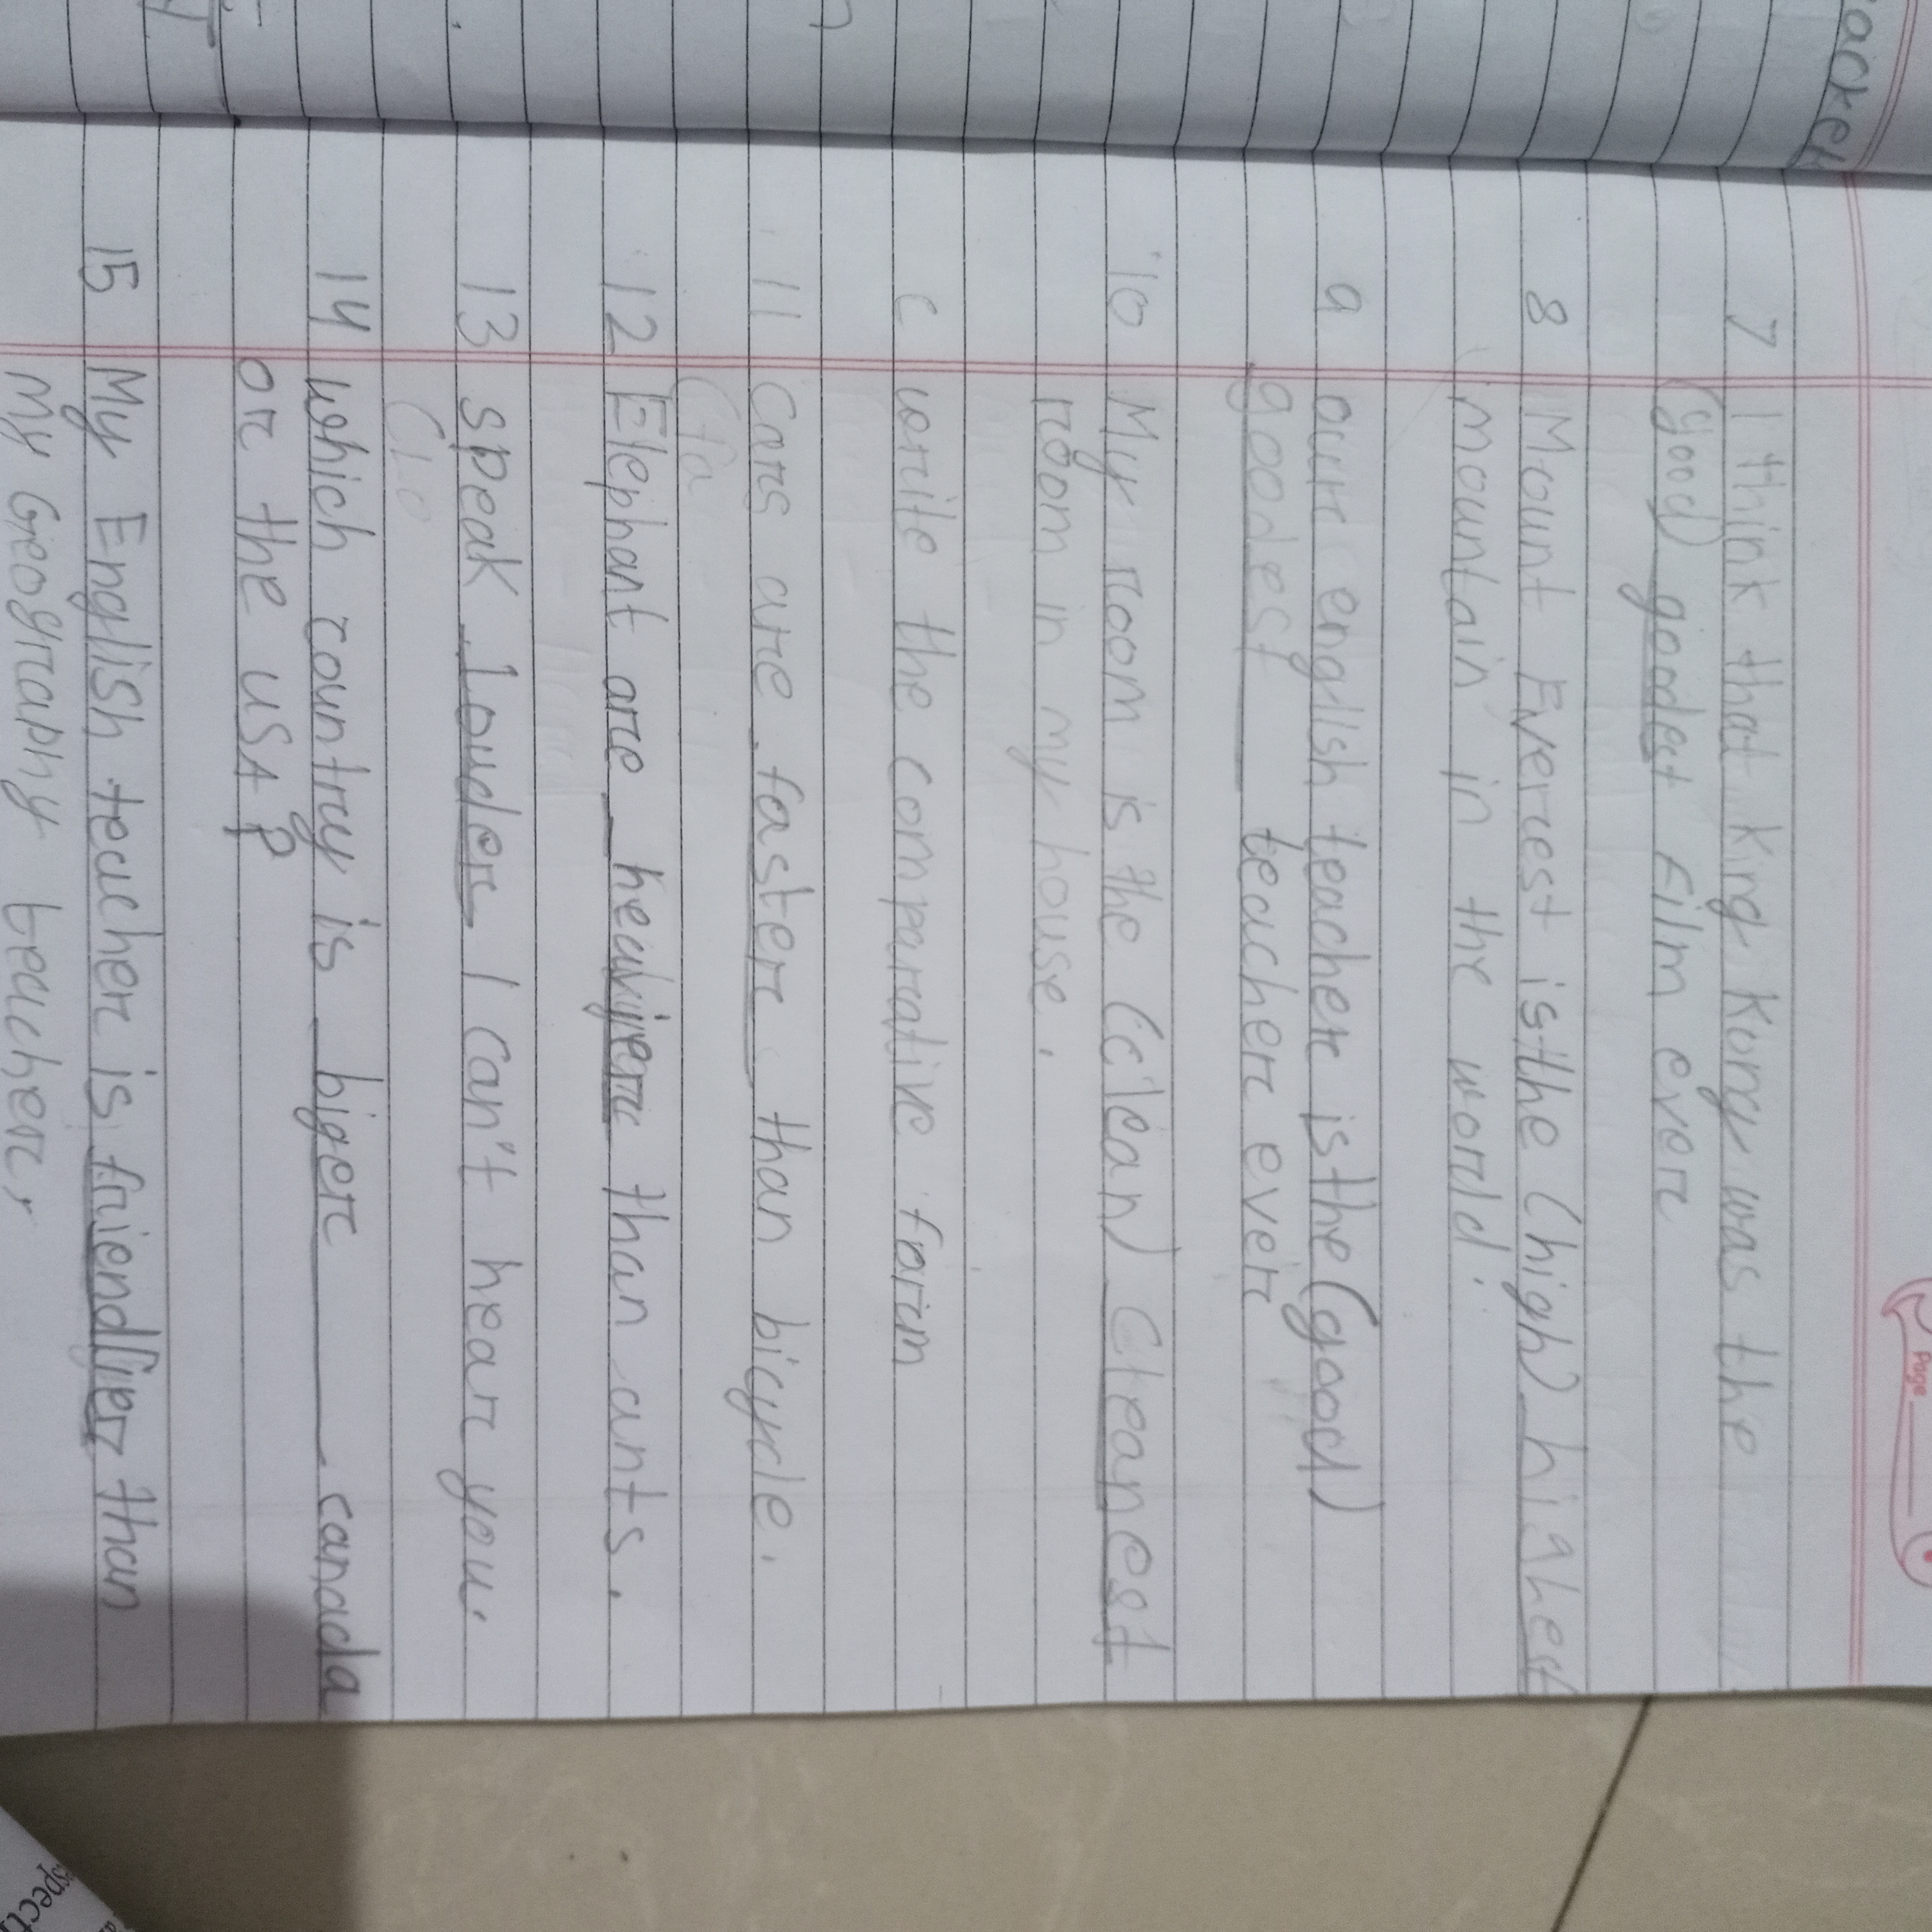 acket
Page
7 I think that King Kong was the
(good) goodest film ever
8 Mount Everest is the (high) highest
mountain in the world.
9 our english teacher is the (good)
goodest teacher ever
10 My room is the (clean) cleanest
room in my house.
C write the comparative form
11 Cars are faster than bicycle.
(fa
12 Elephant are heavyier than ants.
13 speak louder I can't hear you.
(Lo
14 which country is biger canada
or the USA?
15 My English teacher is friendlier than
My Geography teacher.
spect